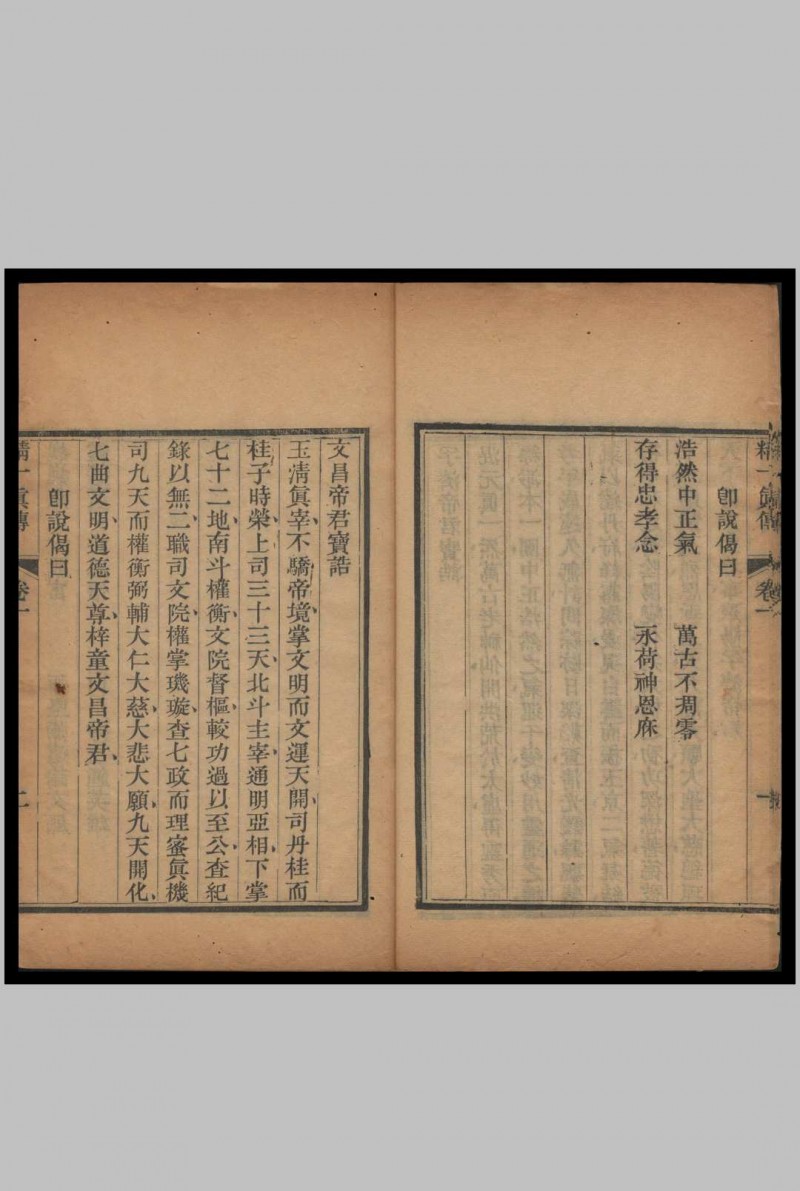 精一眞傳 卷一 一
卽說偈曰
浩然中正氣 萬古不凋零
存得忠孝念 永荷神恩庥
文昌帝君寶誥
玉淸眞宰、不驕帝境、掌文明而文運天開、司丹桂而
桂子時榮、上司三十三天、北斗主宰、通明亞相、下掌
七十二地、南斗權衡、文院督樞、較功過以至公、查紀
錄以無二、職司文院、權掌璣璇、查七政而理蜜眞機
司九天而權衡弼輔大仁大慈、大悲大願、九天開化、
七曲文明、道德天尊、梓童文昌帝君、
卽說偈曰
精一眞傳 卷一 二